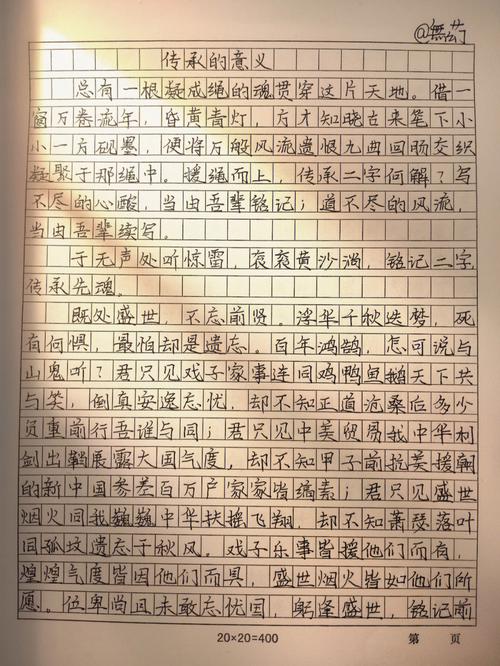 @無茑
传承的意义
总有一根凝成绳的魂贯穿这片天地。借一
窗万卷流年，昏黄青灯，方才知晓古来笔下小
小一方砚墨，便将万般风流遗恨九曲回肠交织
凝聚于那绳中。援绳而上，传承二字何解？写
不尽的心酸，当由吾辈铭记；道不尽的风流，
当由吾辈续写。
于无声处听惊雷，衮衮黄沙淌，铭记二字，
传承先魂。
既处盛世，不忘前贤。浮华千秋迭梦，死
有何惧，最怕却是遗忘。百年鸿鹄，怎可说与
山鬼听？君只见戏子家事连同鸡鸭鱼鹅天下共
与笑，倒真安逸忘忧，却不知正道沧桑后多少
负重前行吾谁与同；君只见中美贸易我中华利
剑出鞘展露大国气度，却不知甲子前抗美援朝
的新中国参差百万户家家皆缟素；君只见盛世
烟火同我巍巍中华扶摇飞翔，却不知萧瑟落叶
同孤坟遗忘于秋风。戏子乐事皆援他们而有，
煌煌气度皆因他们而具，盛世烟火皆如他们所
愿。位卑尚且未敢忘忧国，躬逢盛世，铭记前
20×20=400
第 页